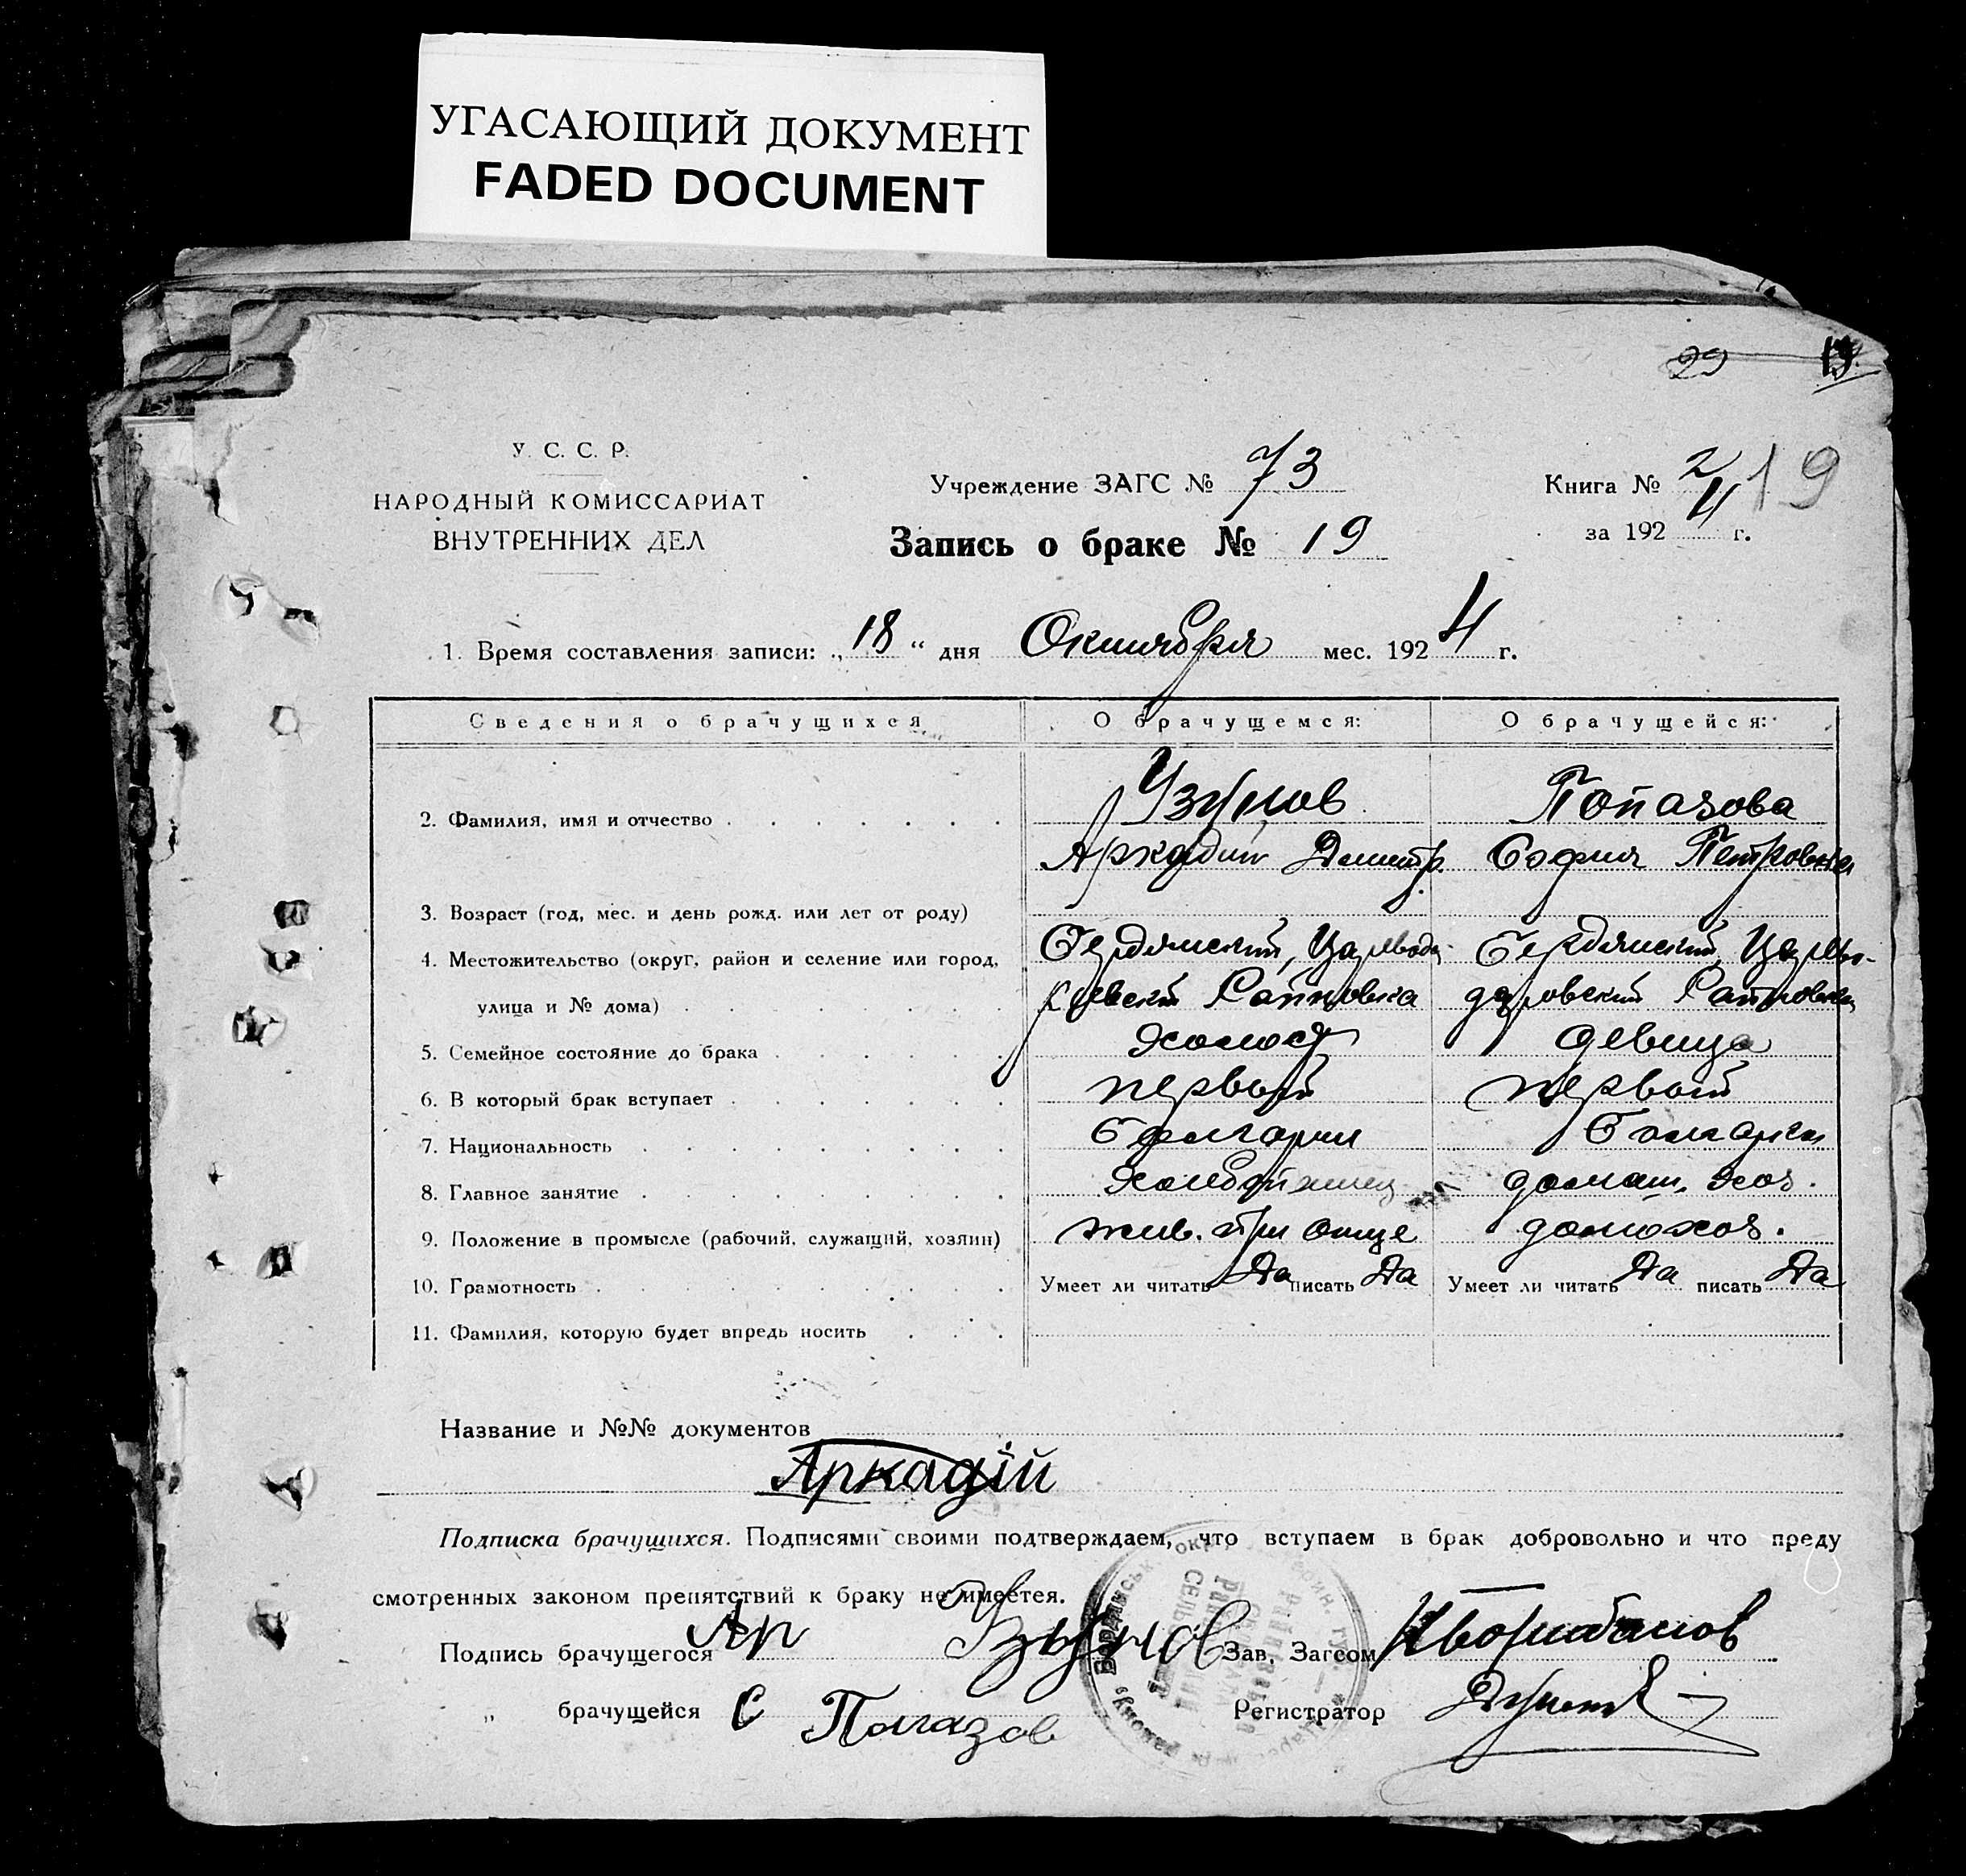 УГАСАЮЩИЙ ДОКУМЕНТ
FADED DOCUMENT
29 19.
У. С. С. Р.
НАРОДНЫЙ КОМИССАРИАТ
ВНУТРЕННИХ ДЕЛ
Учреждение ЗАГС № 73
Книга № 2 19
за 1924 г.
Запись о браке № 19
1. Время составления записи: „18“ дня Октября мес. 1924 г.
Сведения о брачущихся О брачущемся: О брачущейся:
2. Фамилия, имя и отчество Узунов Попазова
Аркадий Димитр. София Петровна
3. Возраст (год, мес. и день рожд. или лет от роду)
4. Местожительство (округ, район и селение или город, Бердянский, Царевода- Бердянский, Царево-
улица и № дома) ровский Райновка даровский Райновка
5. Семейное состояние до брака холост девица
6. В который брак вступает первый первый
7. Национальность Болгарин Болгарка
8. Главное занятие Хлебопашец домаш. хоз.
9. Положение в промысле (рабочий, служащий, хозяин) жив. при отце домохоз.
10. Грамотность Умеет ли читать Да писать Да Умеет ли читать Да писать Да
11. Фамилия, которую будет впредь носить
Название и №№ документов
Аркадій
Подписка брачущихся. Подписями своими подтверждаем, что вступаем в брак добровольно и что преду
смотренных законом препятствий к браку не имеется.
Подпись брачущегося Ар Узунов Зав. Загсом
„ брачущейся С Папазов Регистратор